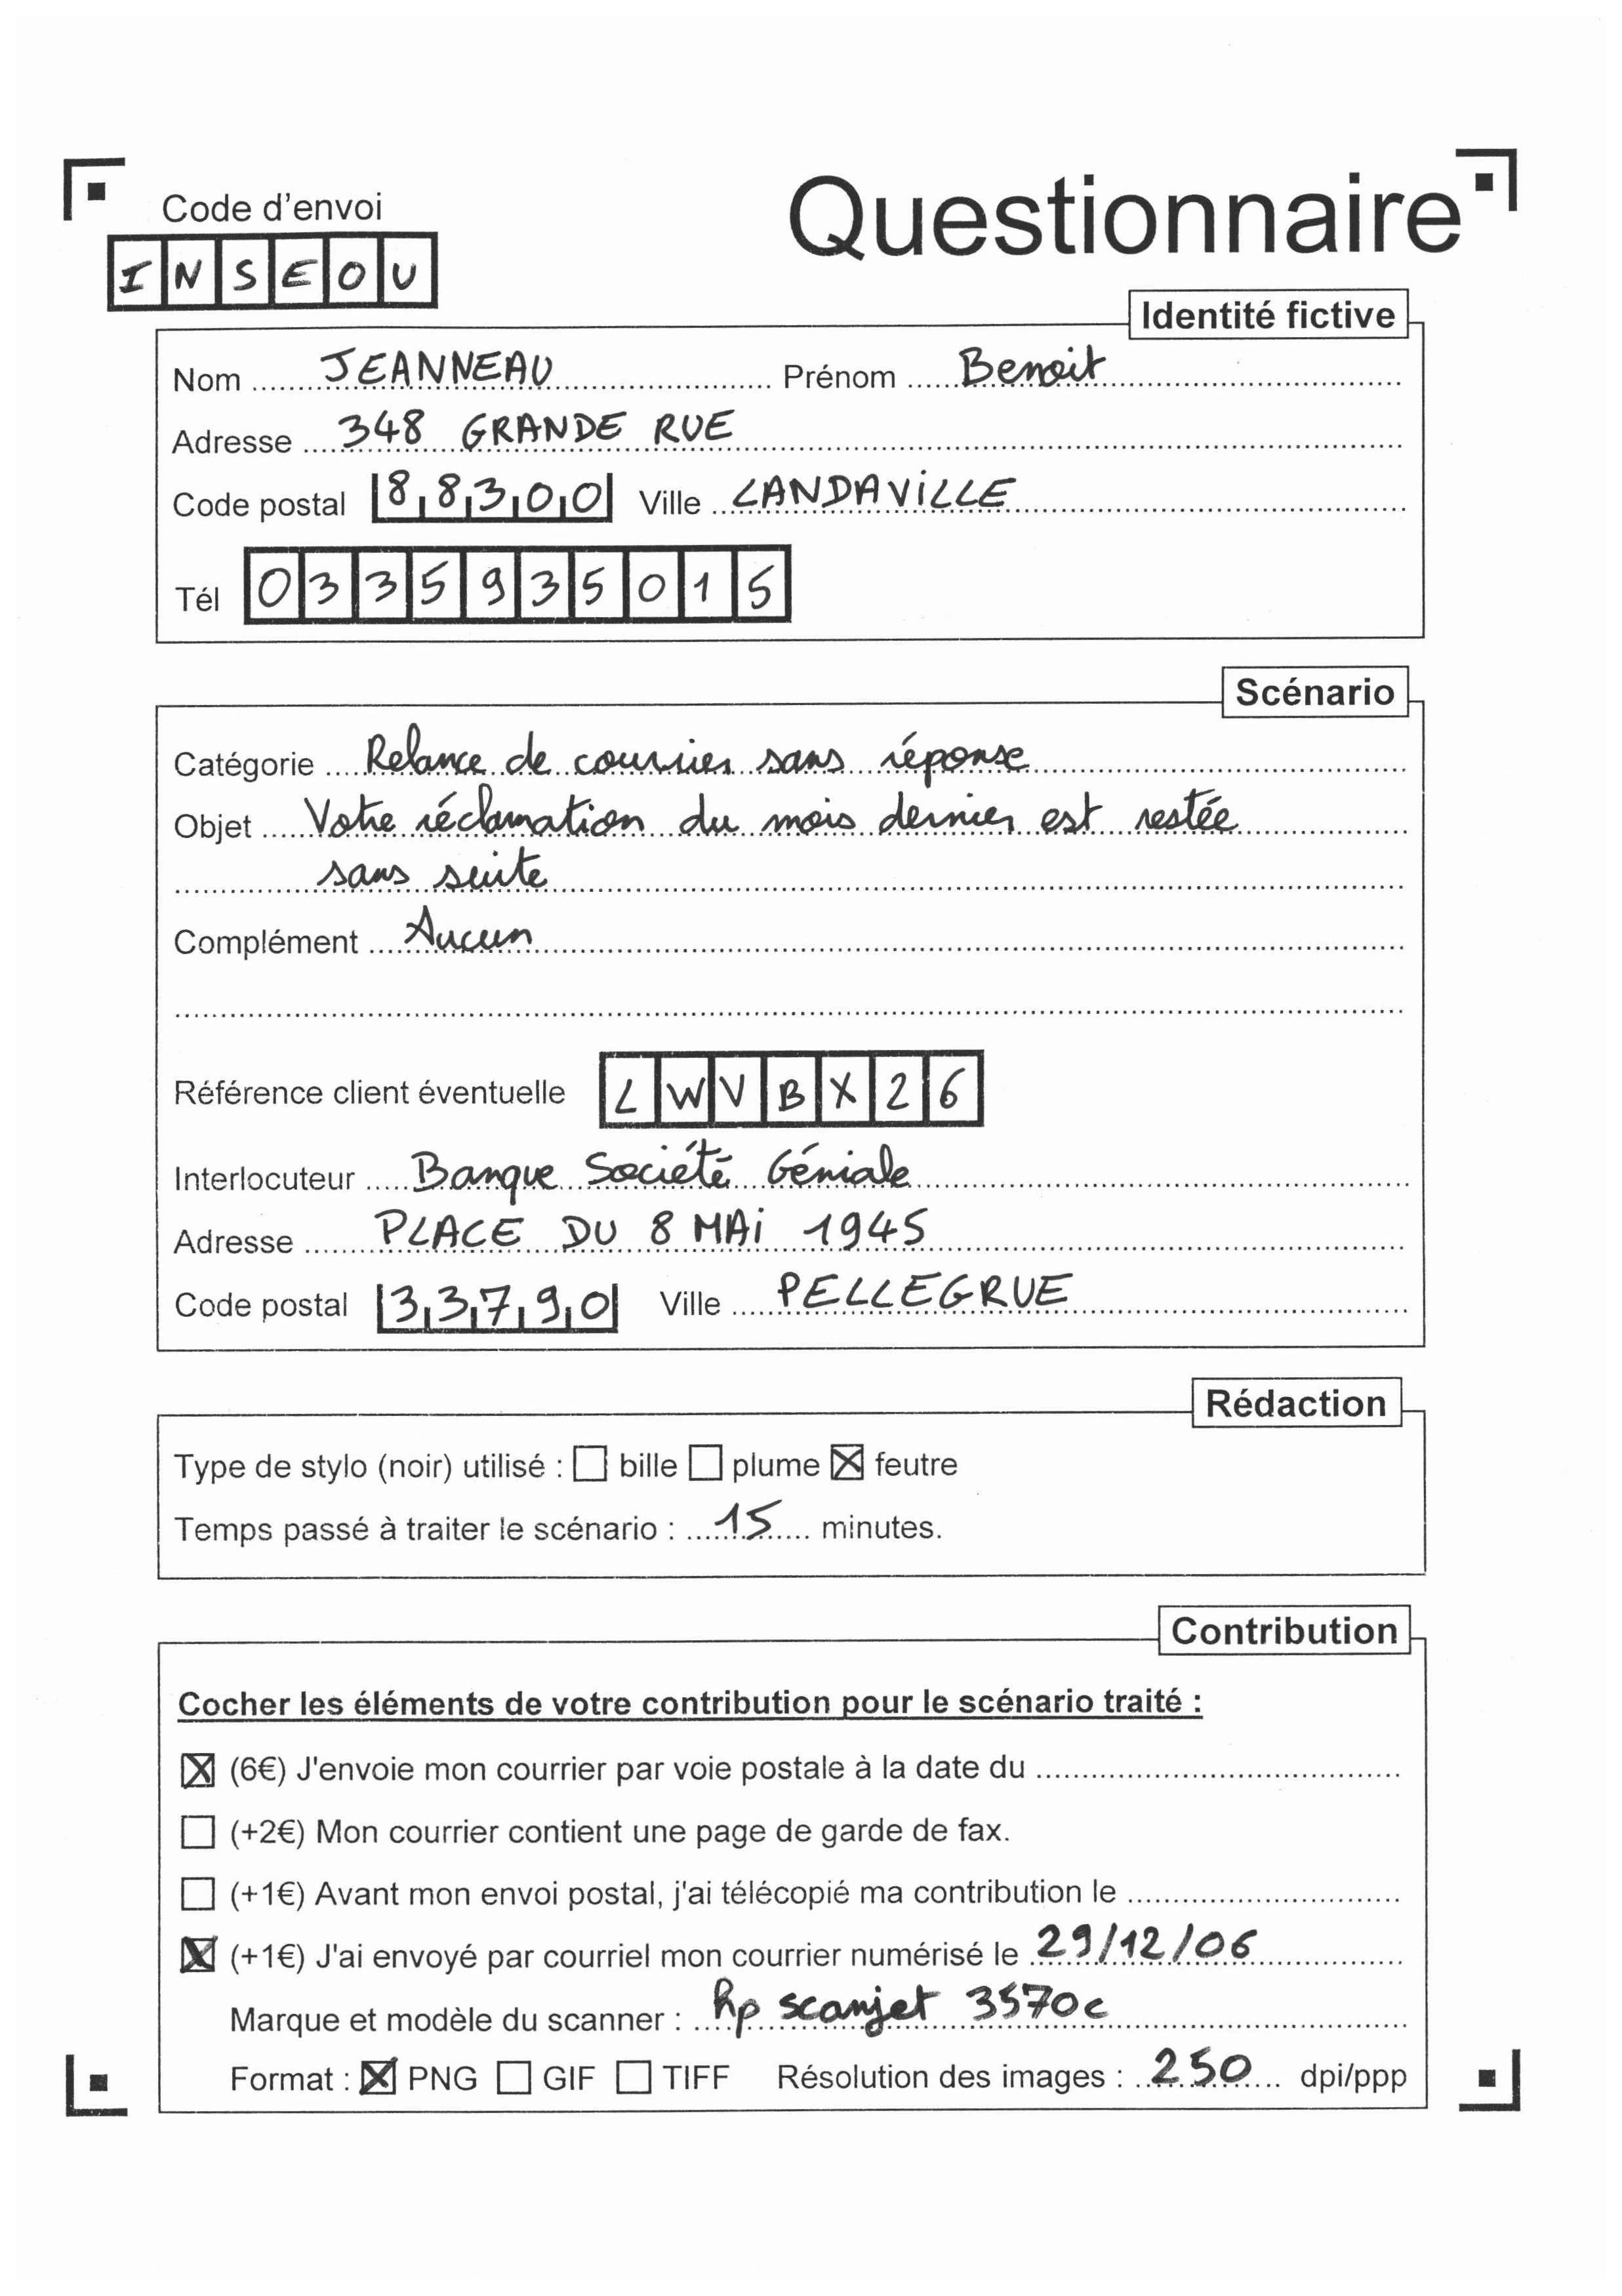 Code d'envoi
Questionnaire
INSEOU
Identité fictive
Nom JEANNEAU Prénom Benoit
Adresse 348 GRANDE RUE
Code postal 88300 Ville LANDAVILLE
Tél 0335935015
Scénario
Catégorie Relance de courrier sans réponse
Objet Votre réclamation du mois dernier est restée
sans suite
Complément Aucun
Référence client éventuelle LWVBX26
Interlocuteur Banque Société Géniale
Adresse PLACE DU 8 MAi 1945
Code postal 33790 Ville PELLEGRUE
Rédaction
Type de stylo (noir) utilisé : ☐ bille ☐ plume ☒ feutre
Temps passé à traiter le scénario : 15 minutes.
Contribution
Cocher les éléments de votre contribution pour le scénario traité :
☒ (6€) J'envoie mon courrier par voie postale à la date du
☐ (+2€) Mon courrier contient une page de garde de fax.
☐ (+1€) Avant mon envoi postal, j'ai télécopié ma contribution le
☒ (+1€) J'ai envoyé par courriel mon courrier numérisé le 29/12/06
Marque et modèle du scanner : hp scanjet 3570c
Format : ☒ PNG ☐ GIF ☐ TIFF Résolution des images : 250 dpi/ppp